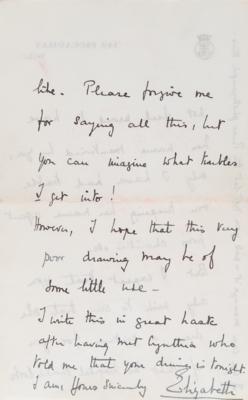 like. Please forgive me
for saying all this, but
you can imagine what troubles
I get into!
However, I hope that this very
poor drawing may be of
some little use –
I write this in great haste
after having met Cynthia who
told me, that your dinner is tonight.
I am, Yours Sincerely Elizabeth